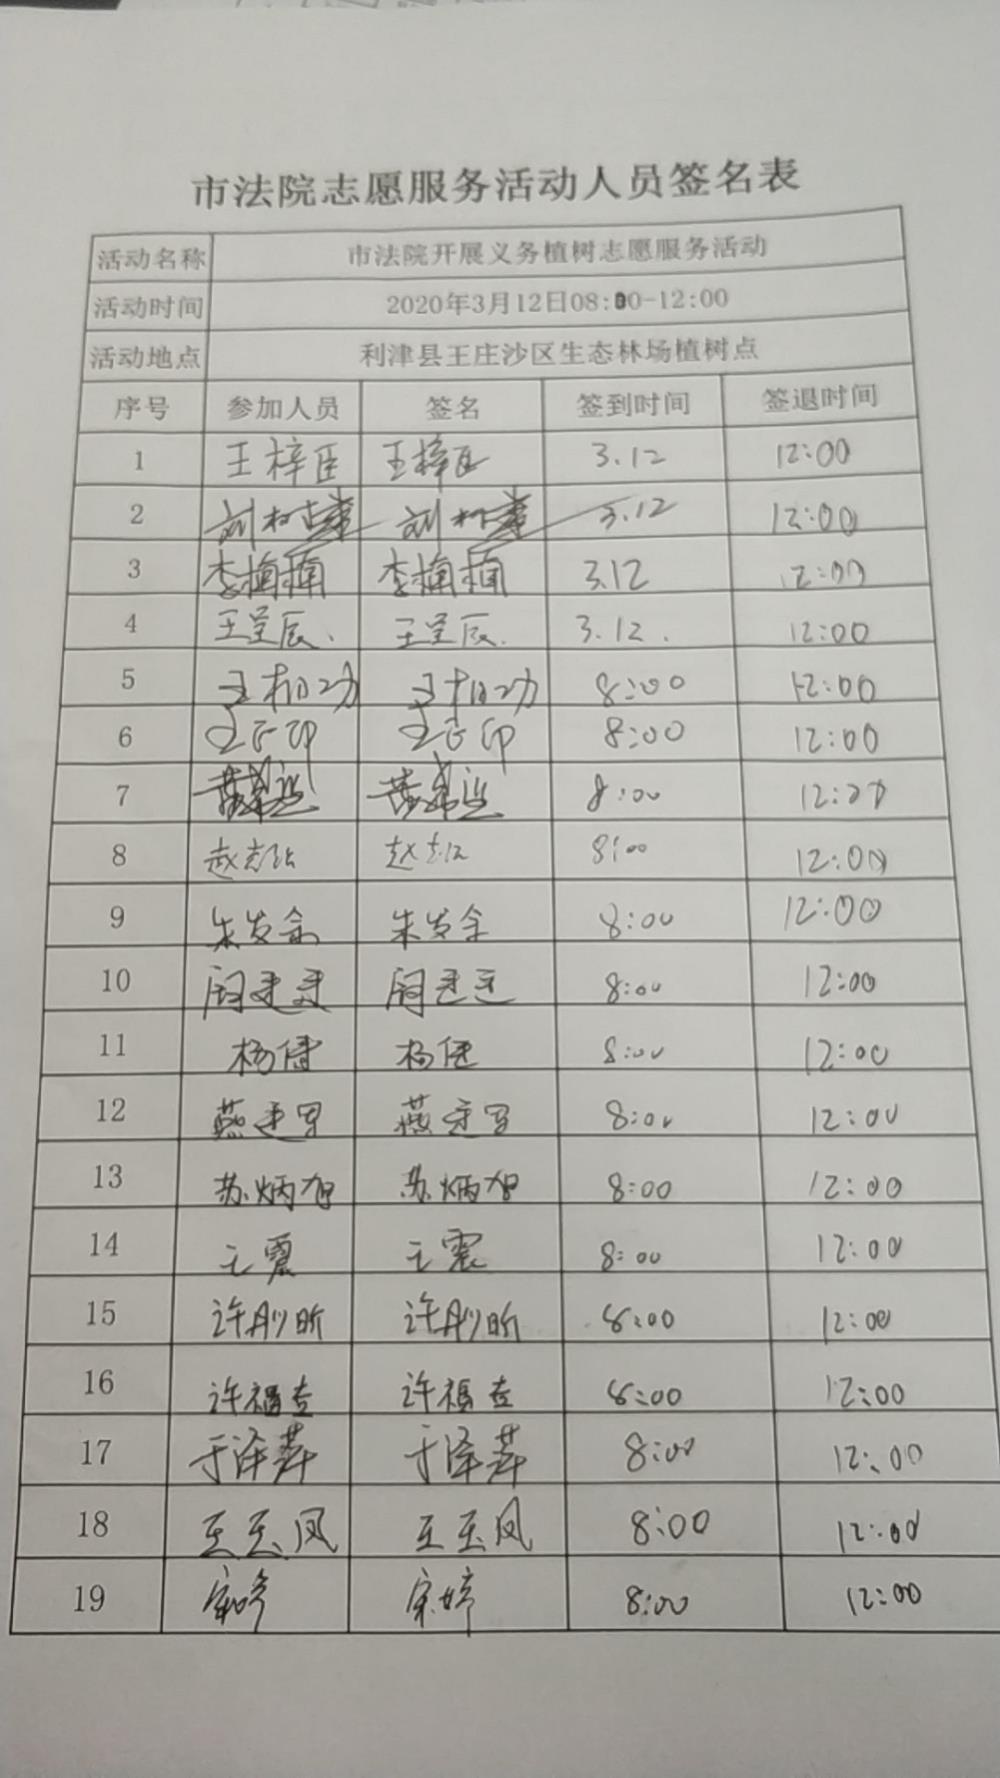 市法院志愿服务活动人员签名表
活动名称 市法院开展义务植树志愿服务活动
活动时间 2020年3月12日08:00-12:00
活动地点 利津县王庄沙区生态林场植树点
序号 参加人员 签名 签到时间 签退时间
1 王梓臣 王梓臣 3.12 12:00
2 3.12 12:00
3 李楠楠 李楠楠 3.12 12:00
4 王呈辰. 王呈辰. 3.12. 12:00
5 王柏功 王柏功 8:00 12:00
6 王正印 王正印 8:00 12:00
7 8:00 12:00
8 8:00 12:00
9 朱发余 朱发余 8:00 12:00
10 8:00 12:00
11 杨健 杨健 8:00 12:00
12 燕建军 燕建军 8:00 12:00
13 苏炳智 苏炳智 8:00 12:00
14 王震 王震 8:00 12:00
15 许彤昕 许彤昕 8:00 12:00
16 许福杰 许福杰 8:00 12:00
17 于泽萍 于泽萍 8:00 12:00
18 王玉凤 王玉凤 8:00 12:00
19 宋婷 宋婷 8:00 12:00